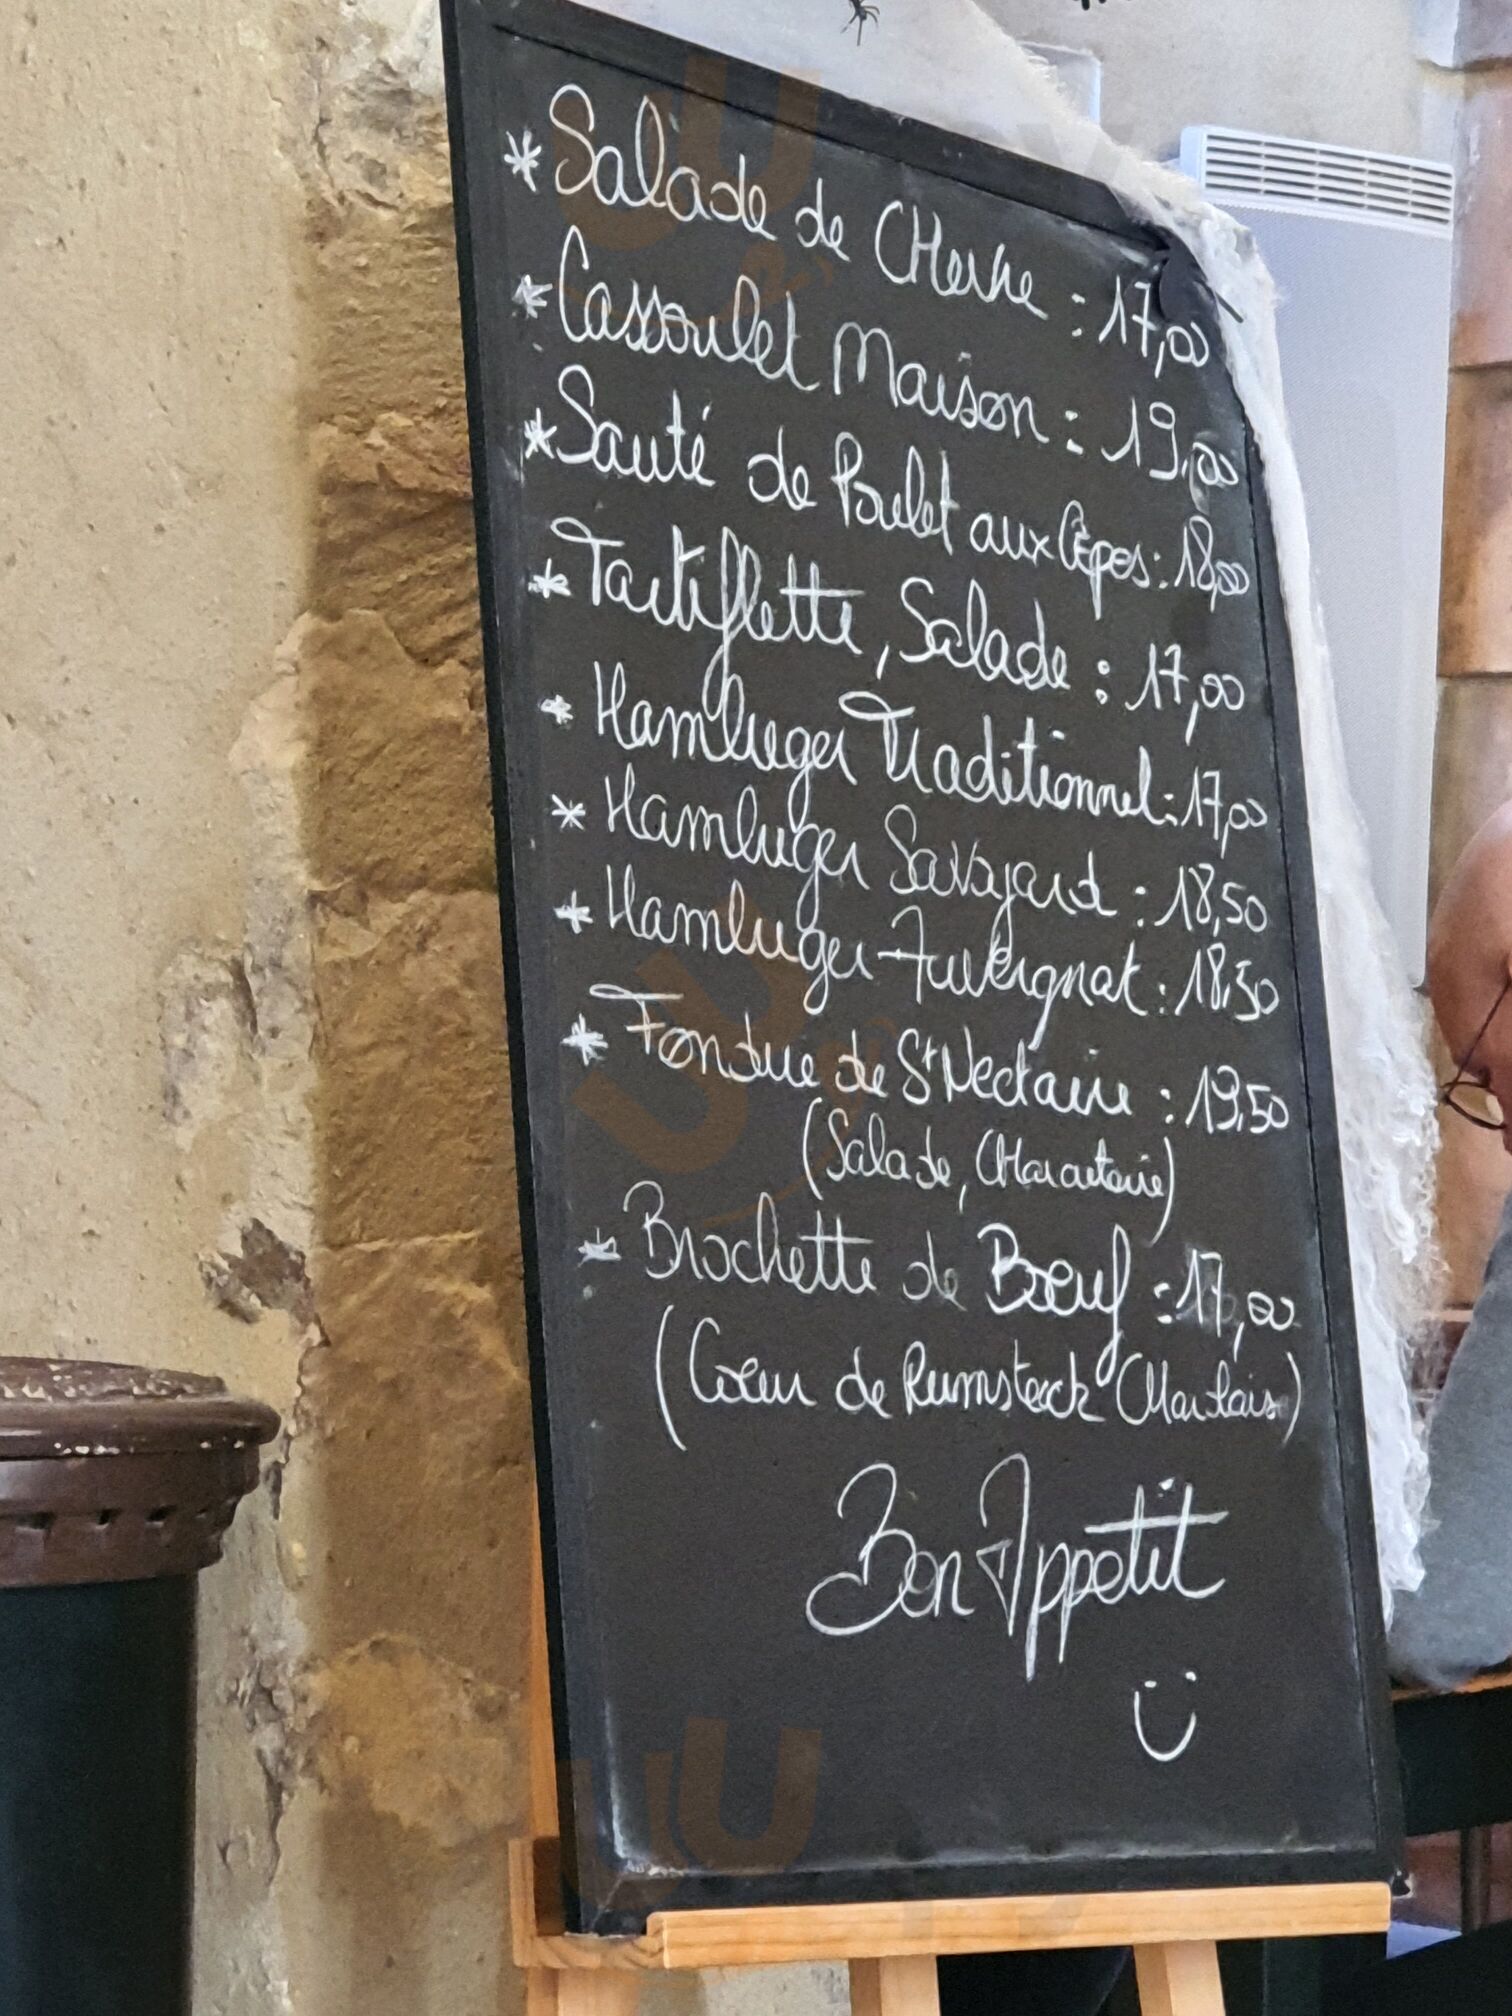 * Salade de CHevre : 17,00
* Cassoulet Maison : 19,00
* Sauté de Poulet aux Cèpes : 18,00
* Tartiflette, Salade : 17,00
* Hambuger Traditionnel : 17,00
* Hambuger Savoyard : 18,50
* Hambuger Auvergnat : 18,50
* Fondue de St Nectaire : 19,50
(Salade, CHarcuterie)
* Brochette de Boeuf : 17,00
(Coeur de Rumsteack Charolais)
Bon Appetit